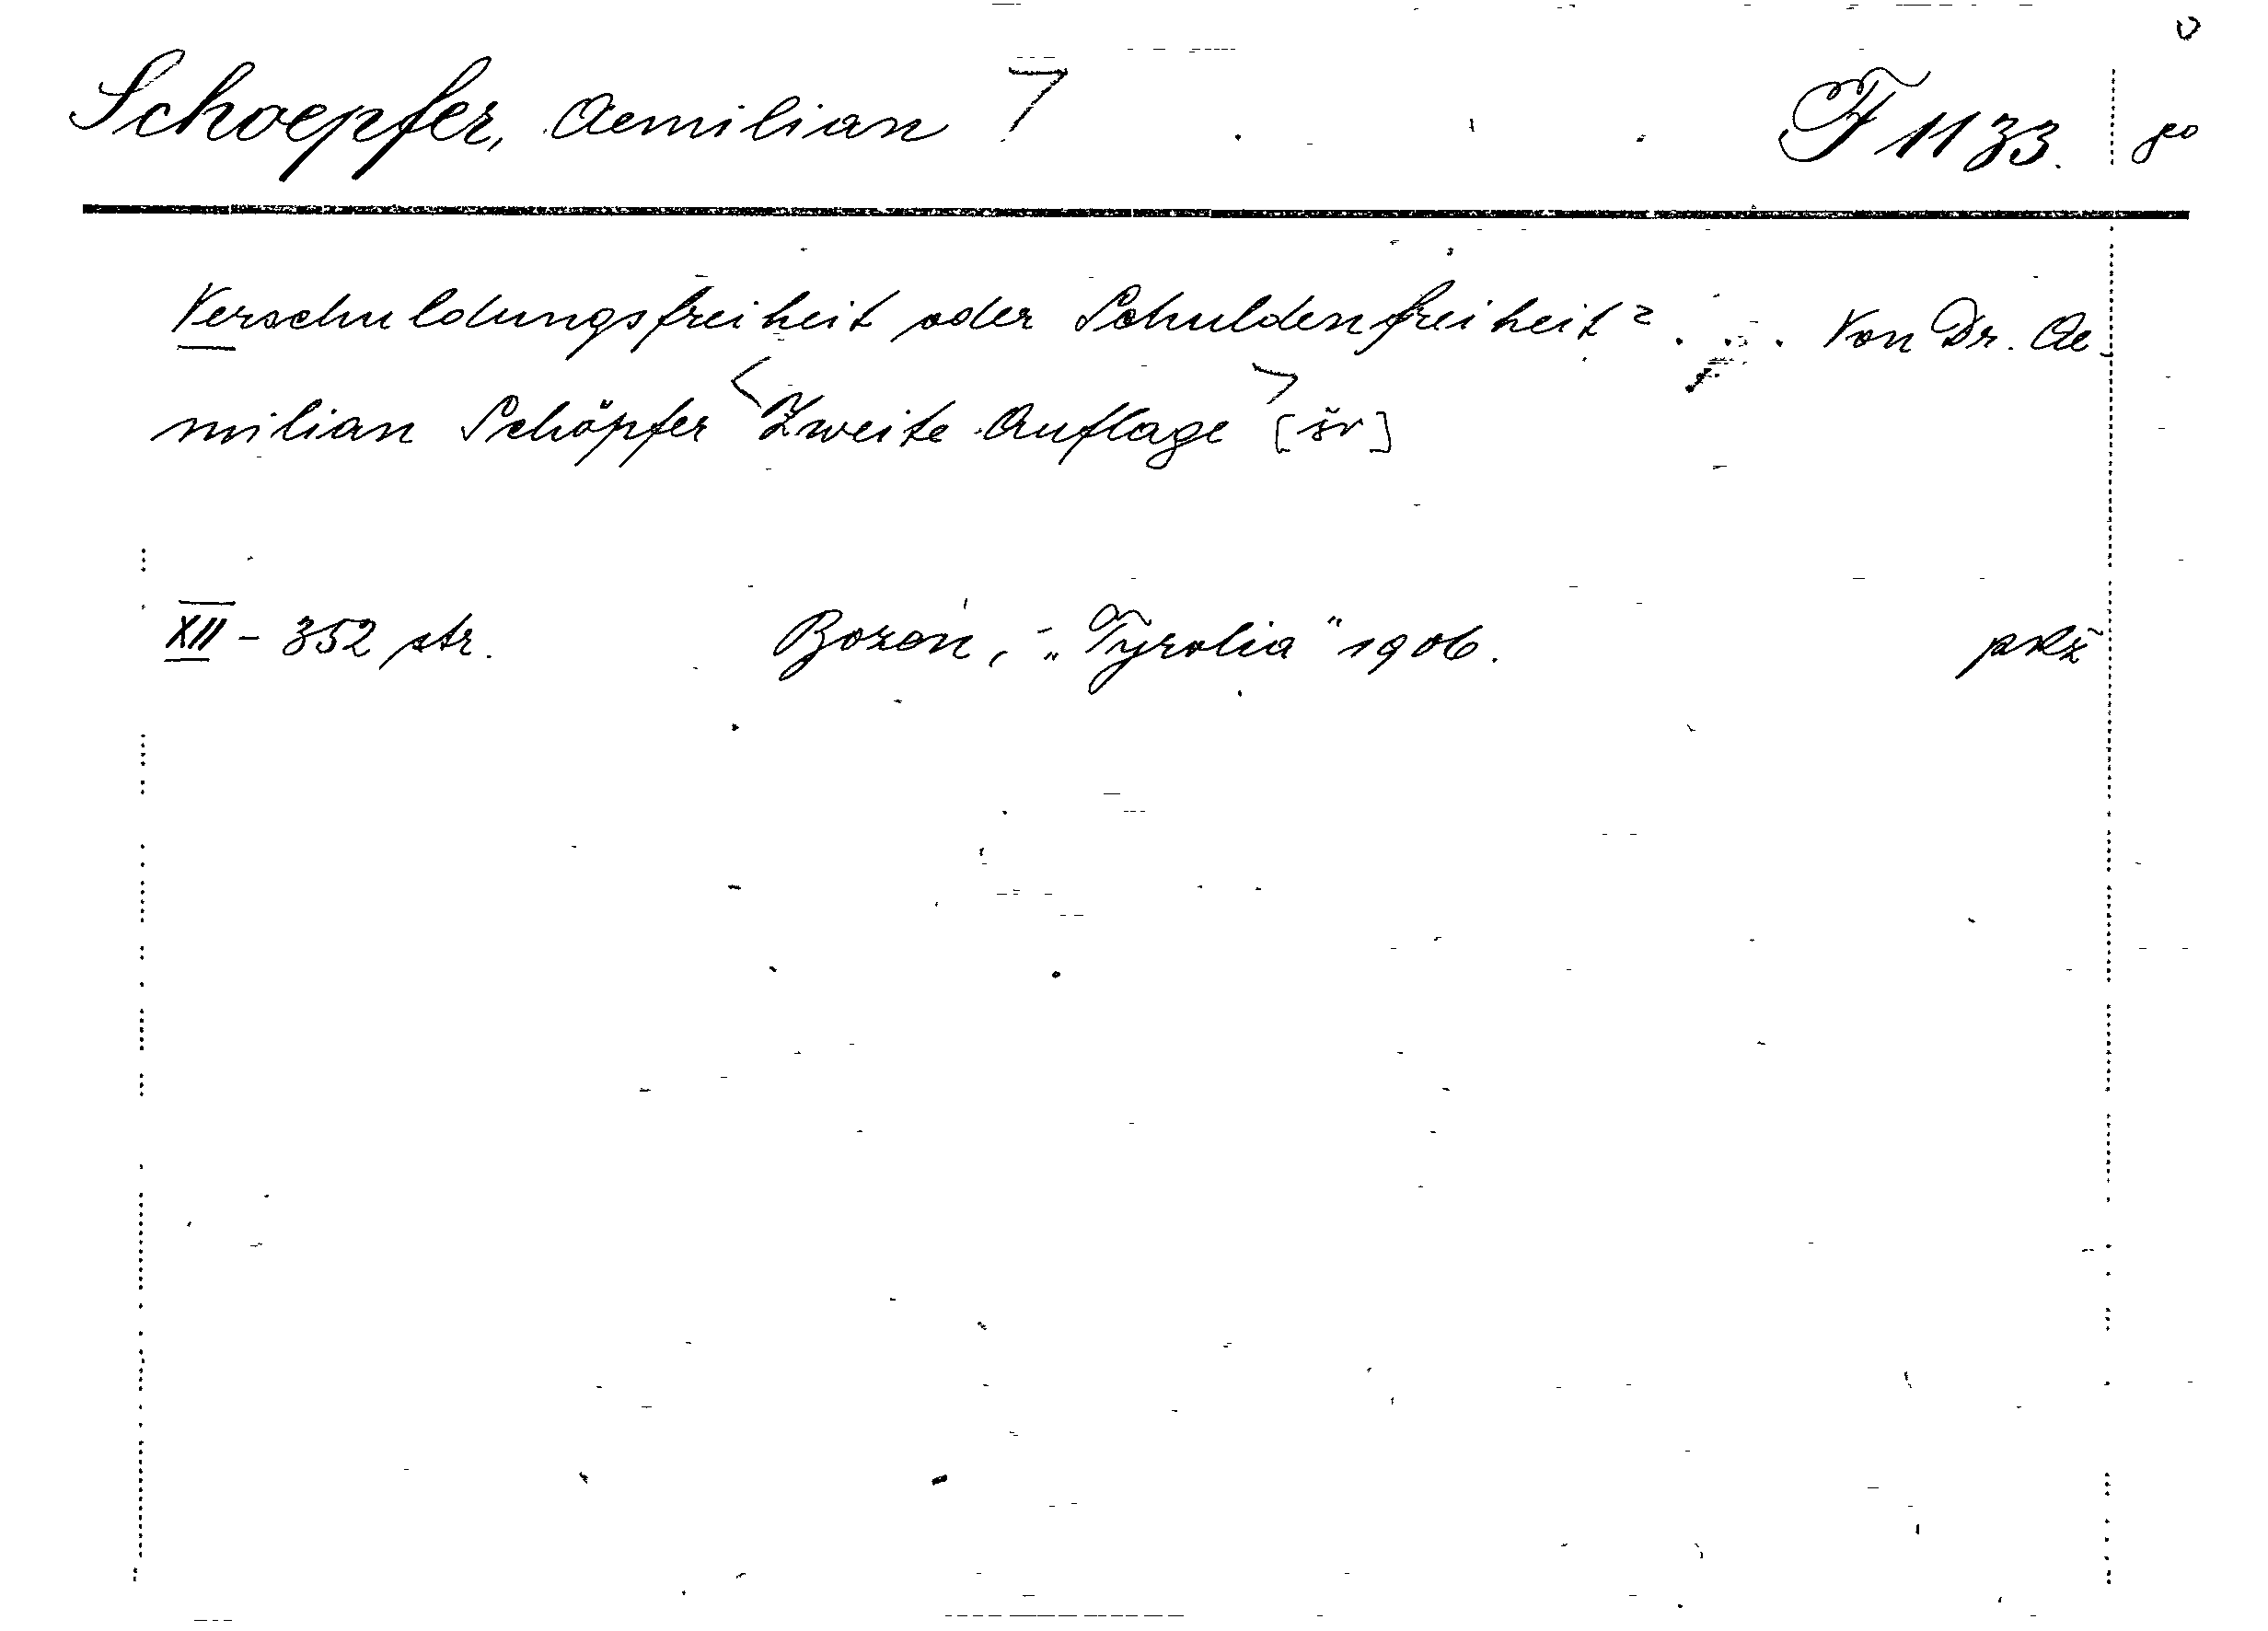 Schoepfer, Aemilian F 1133. 8°
Verschuldungsfreiheit oder Schuldenfreiheit? ... Von Dr. Ae-
milian Schöpfer <Zweite Auflage> [šv]
XII - 352 str. Bozen, - „Tyrolia" 1906. pkž